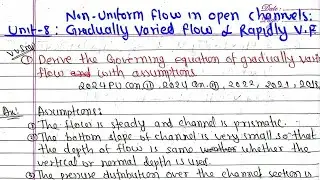 Date:
Non-uniform flow in open channels:
Unit-8: Gradually Varied Flow & Rapidly V.F
V.V. Imp
① Derive the Governing equation of gradually varied
flow and with assumptions.
2021, 2018
Ans: Assumptions:
① The flow is steady and channel is prismatic.
② The bottom slope of channel is very small so that
the depth of flow is same whether the
vertical or normal depth is used.
③ The pressure distribution over the channel section is